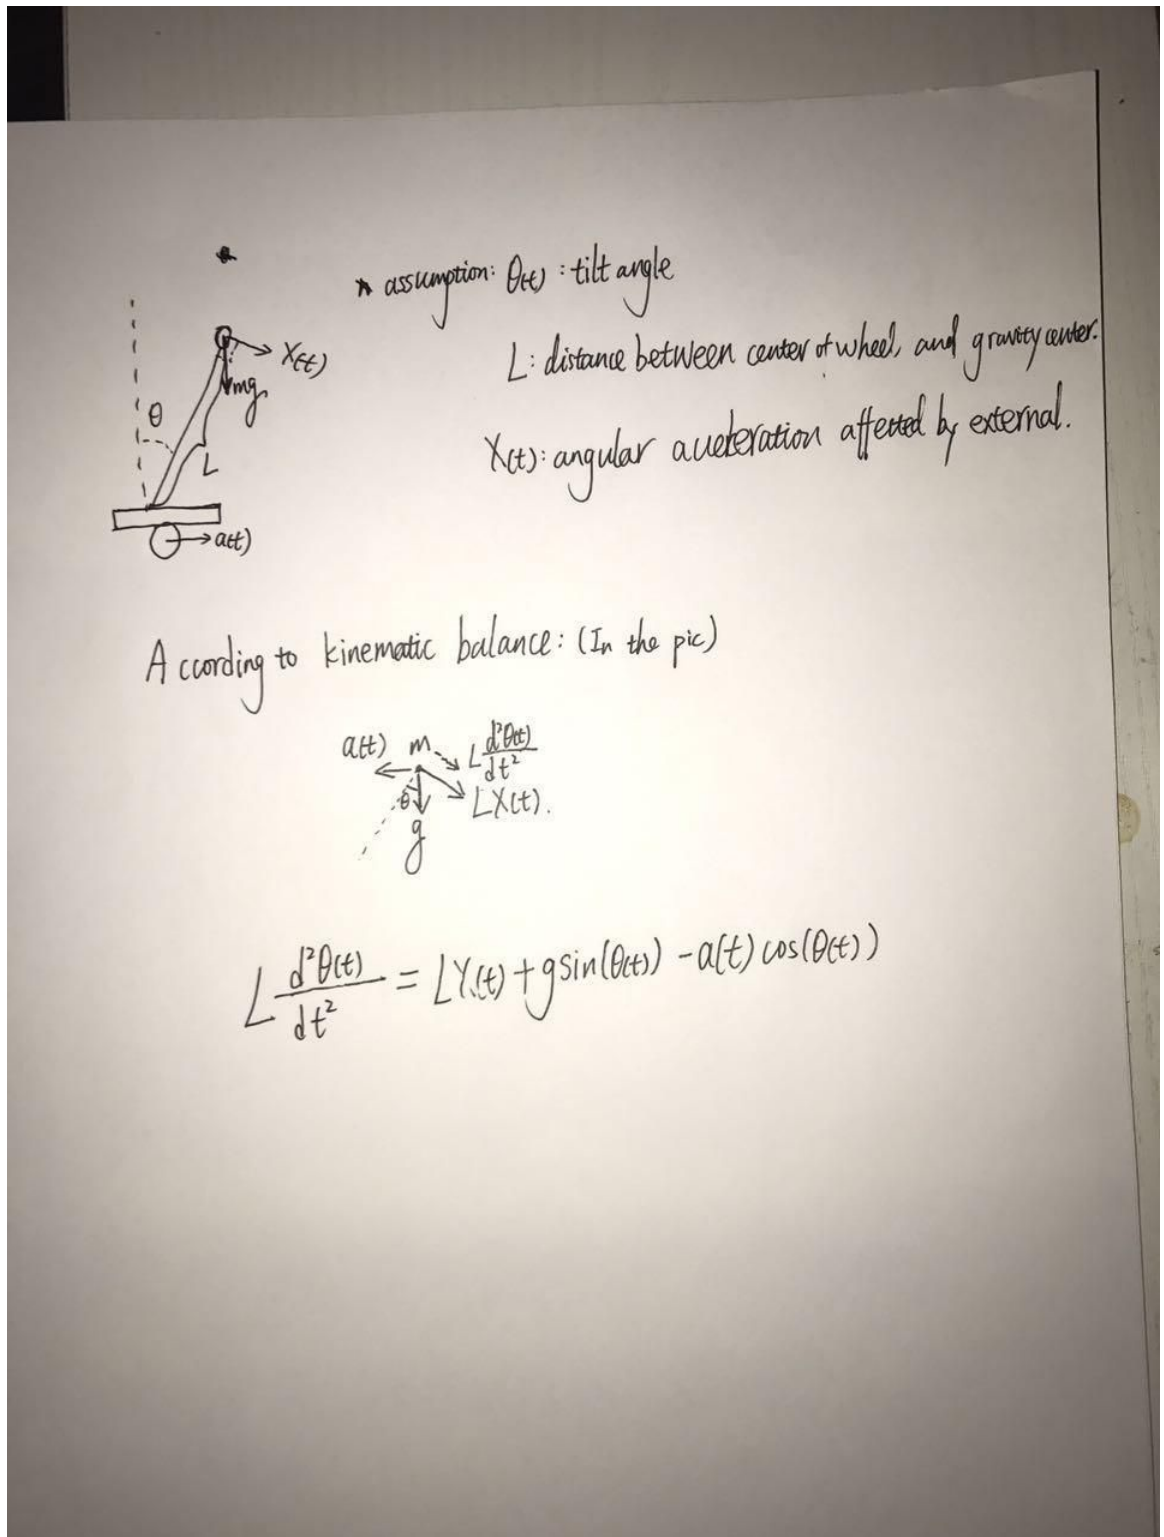 * assumption: θ(t) : tilt angle
L: distance between center of wheel, and gravity center.
X(t): angular acceleration affected by external.
X(t)
mg
θ
L
a(t)
According to kinematic balance: (In the pic)
a(t) m L d²θ(t)/dt²
θ LX(t).
g
L d²θ(t)/dt² = LX(t) + g sin(θ(t)) - a(t) cos(θ(t))